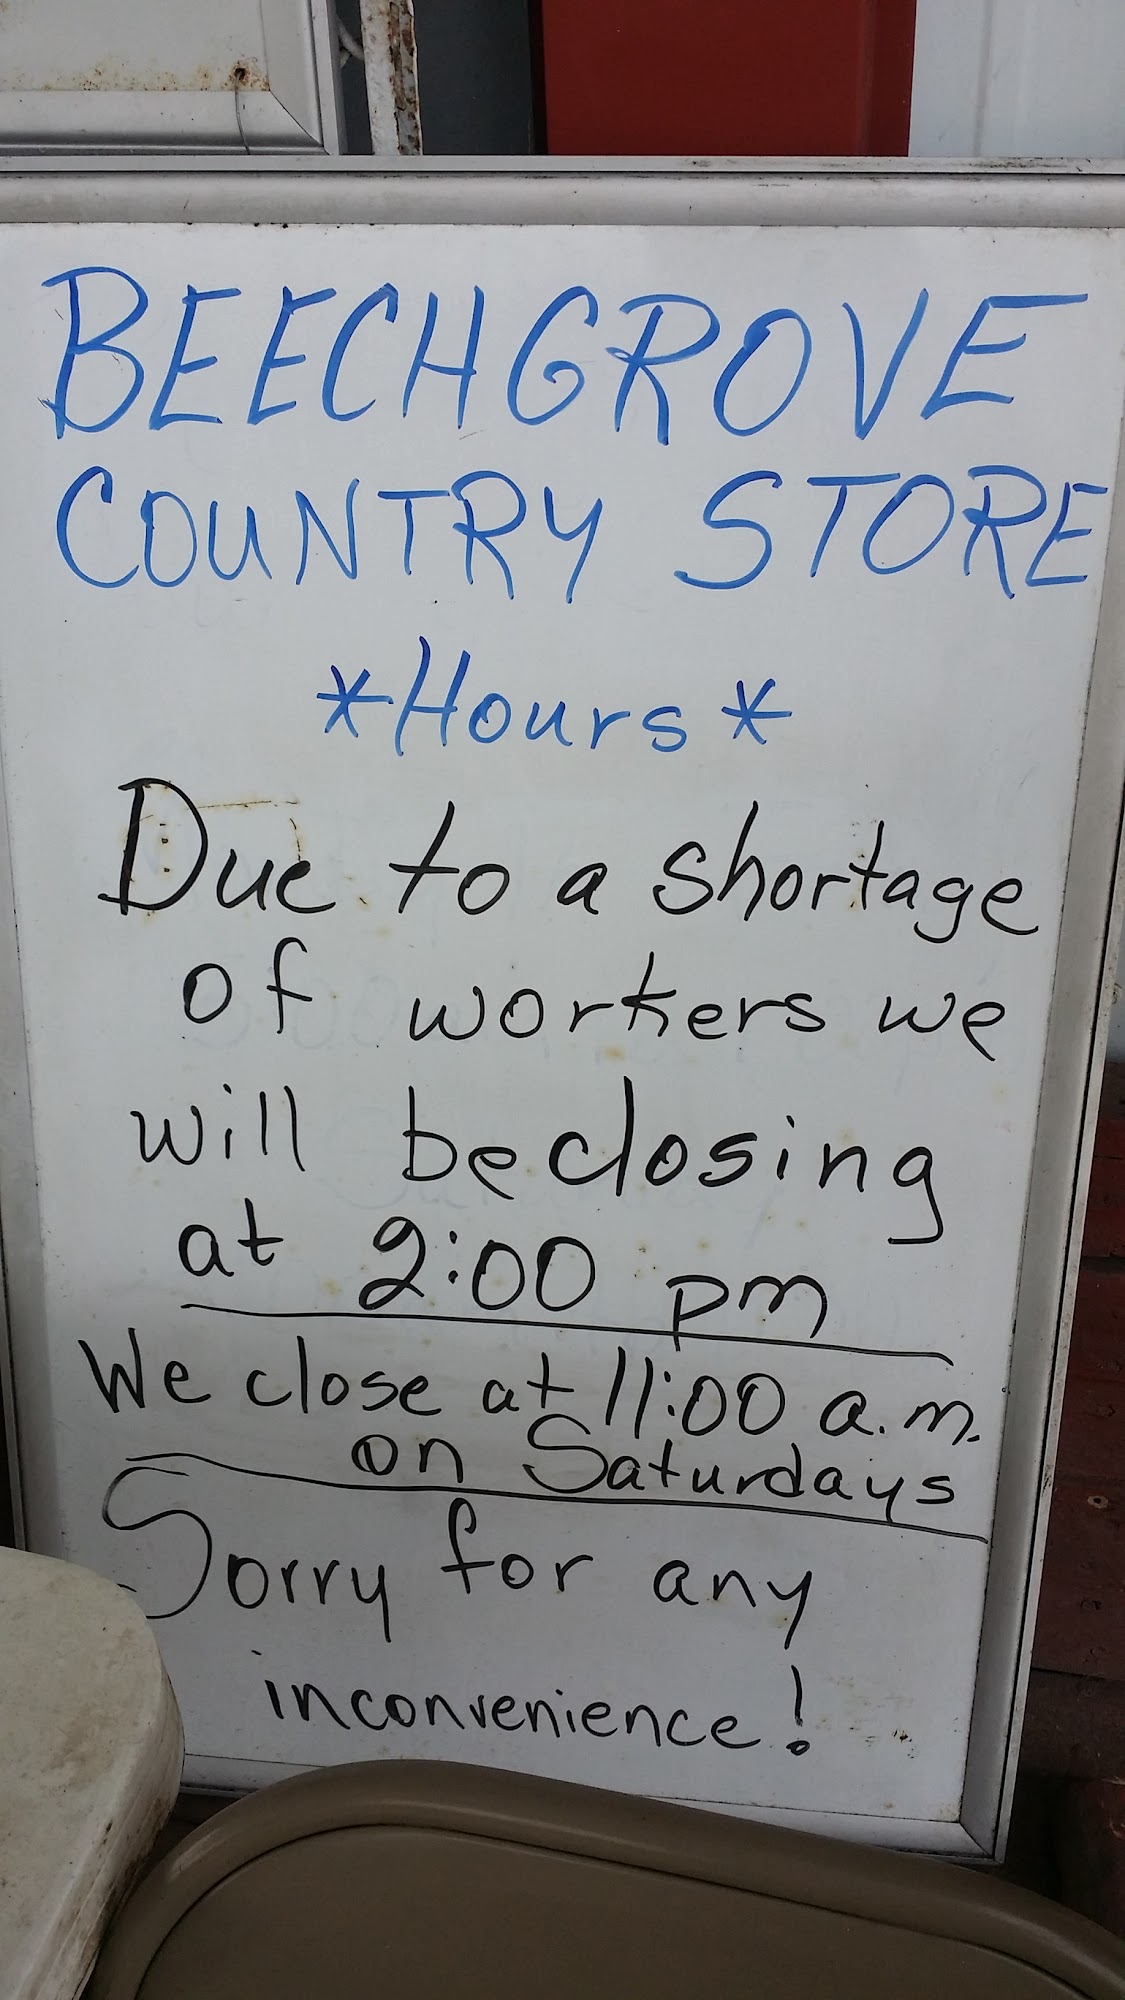 BEECHGROVE
COUNTRY STORE
*Hours*
Due to a shortage
of workers we
will be closing
at 2:00 pm
We close at 11:00 a.m.
on Saturdays
Sorry for any
inconvenience!